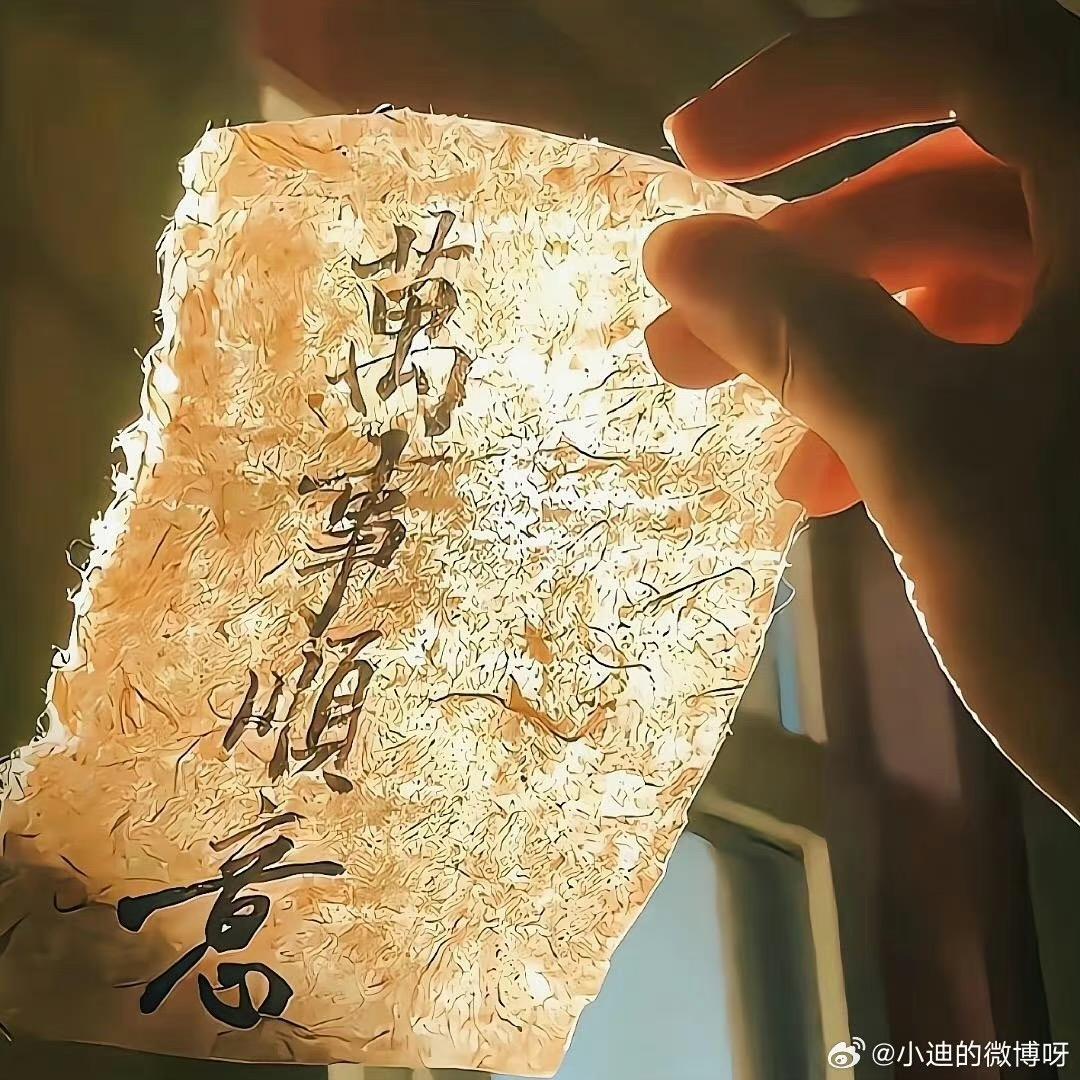 萬事順意
@小迪的微博呀